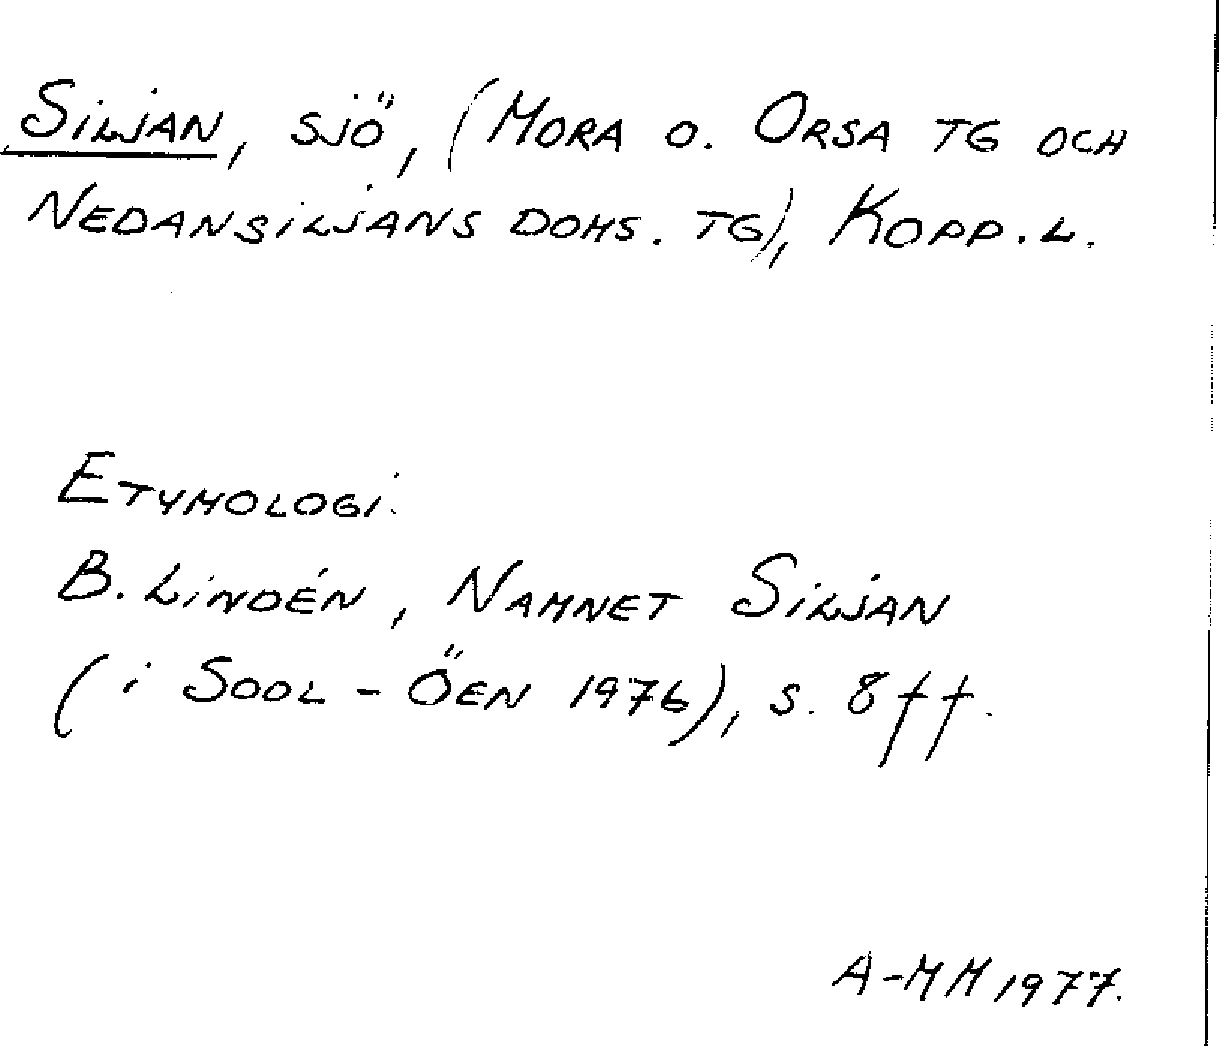 Siljan, sjö, (Mora o. Orsa tg och
Nedansiljans doms. tg), Kopp. l.
Etymologi.
B. Lindén, Namnet Siljan
(i Sool-Öen 1976), s. 8ff.
A-MM 1977.